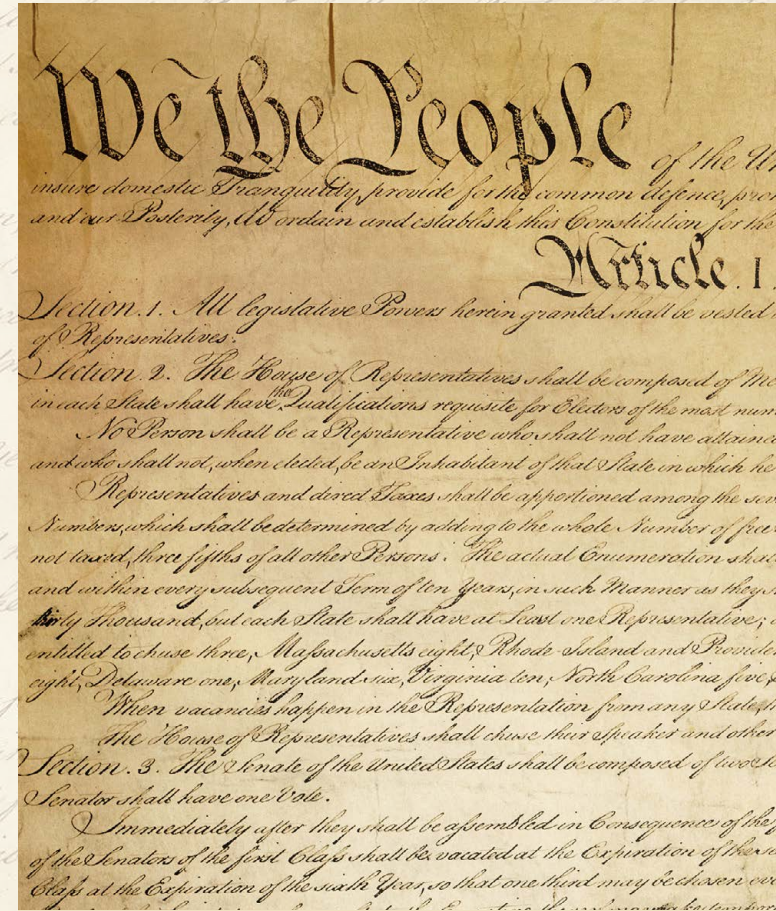 We the People of the Un
insure domestic Tranquility, provide for the common defence, pro
and our Posterity, do ordain and establish this Constitution for the
Article. I.
Section. 1. All legislative Powers herein granted shall be vested
of Representatives.
Section. 2. The House of Representatives shall be composed of Me
in each State shall have the Qualifications requisite for Electors of the most num
No Person shall be a Representative who shall not have attaine
and who shall not, when elected, be an Inhabitant of that State in which he
Representatives and direct Taxes shall be apportioned among the sev
Numbers, which shall be determined by adding to the whole Number of free
not taxed, three fifths of all other Persons. The actual Enumeration sha
and within every subsequent Term of ten Years, in such Manner as they s
thirty Thousand, but each State shall have at Least one Representative;
entitled to chuse three, Massachusetts eight, Rhode-Island and Provide
eight, Delaware one, Maryland six, Virginia ten, North Carolina five,
When vacancies happen in the Representation from any State, th
The House of Representatives shall chuse their Speaker and other
Section. 3. The Senate of the United States shall be composed of two Se
Senator shall have one Vote.
Immediately after they shall be assembled in Consequence of the f
of the Senators of the first Class shall be vacated at the Expiration of the se
Class at the Expiration of the sixth Year, so that one third may be chosen eve